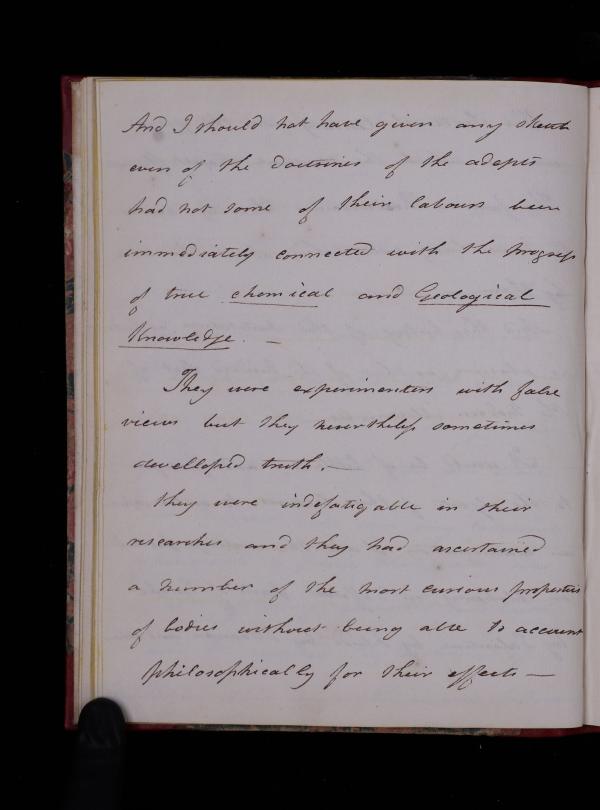 And I should not have given any sketch
even of the doctrines of the adepts
had not some of their labours been
immediately connected with the progress
of true chemical and Geological
Knowledge. —
They were experimenters with false
views but they nevertheless sometimes
devellopped truth. —
They were indefatigable in their
researches and they had ascertained
a number of the most curious properties
of bodies without being able to account
philosophically for their effects —